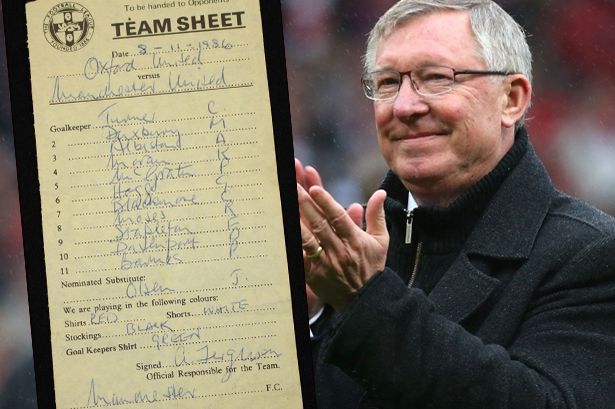 To be handed to Opponents
TEAM SHEET
Date 8-11-1986
Oxford United
versus
Manchester United
Goalkeeper Turner C.
2 Duxbury M
3 Albiston A
4 Moran K
5 McGrath P
6 Hogg G
7 Blackmore C
8 Moses R
9 Stapleton F
10 Davenport P
11 Barnes P
Nominated Substitute:
Olsen J.
We are playing in the following colours:
Shirts RED Shorts WHITE
Stockings BLACK
Goal Keepers Shirt GREEN
Signed A Ferguson
Official Responsible for the Team.
Manchester F.C.